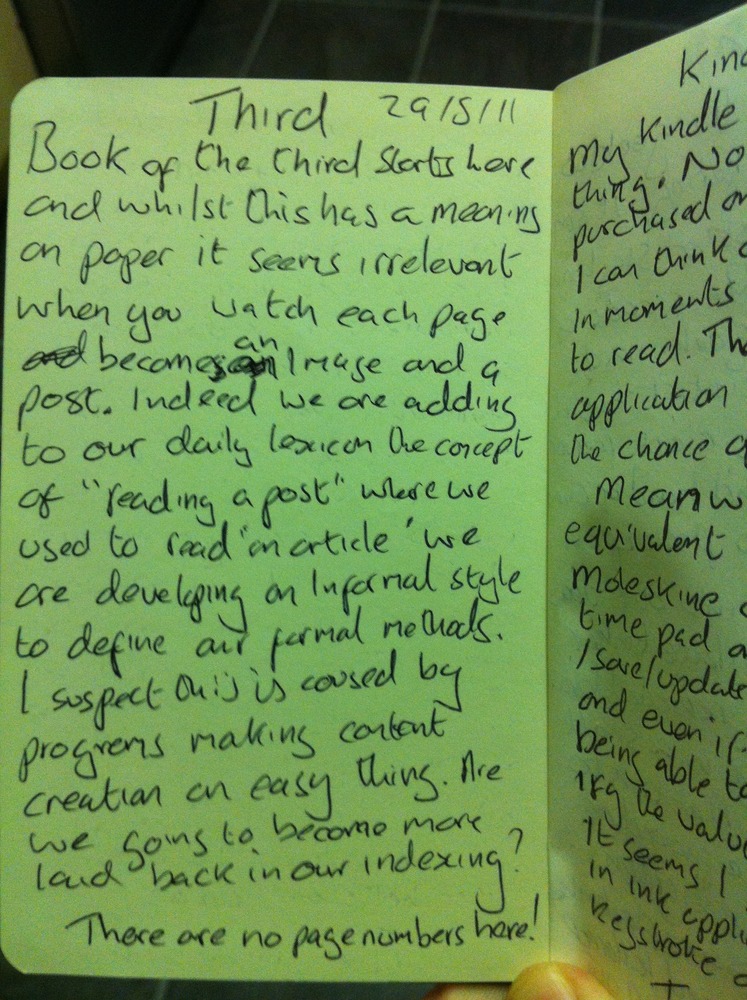 Third 29/5/11
Book of the third starts here
and whilst this has a meaning
on paper it seems irrelevant
when you watch each page
becomes an Image and a
post. Indeed we are adding
to our daily lexicon the concept
of "reading a post" where we
used to read 'an article' we
are developing an Informal style
to define our formal methods.
I suspect this is caused by
programs making content
creation an easy thing. Are
we going to become more
laid back in our indexing?
There are no page numbers here!
My Kindle
thing. No
purchased
I can think
In moments
to read.
application
the chance
Meanw
equivalent
Moleskine
time pad
/save/update
and even if
being able to
the value
It seems I
in ink
keystroke